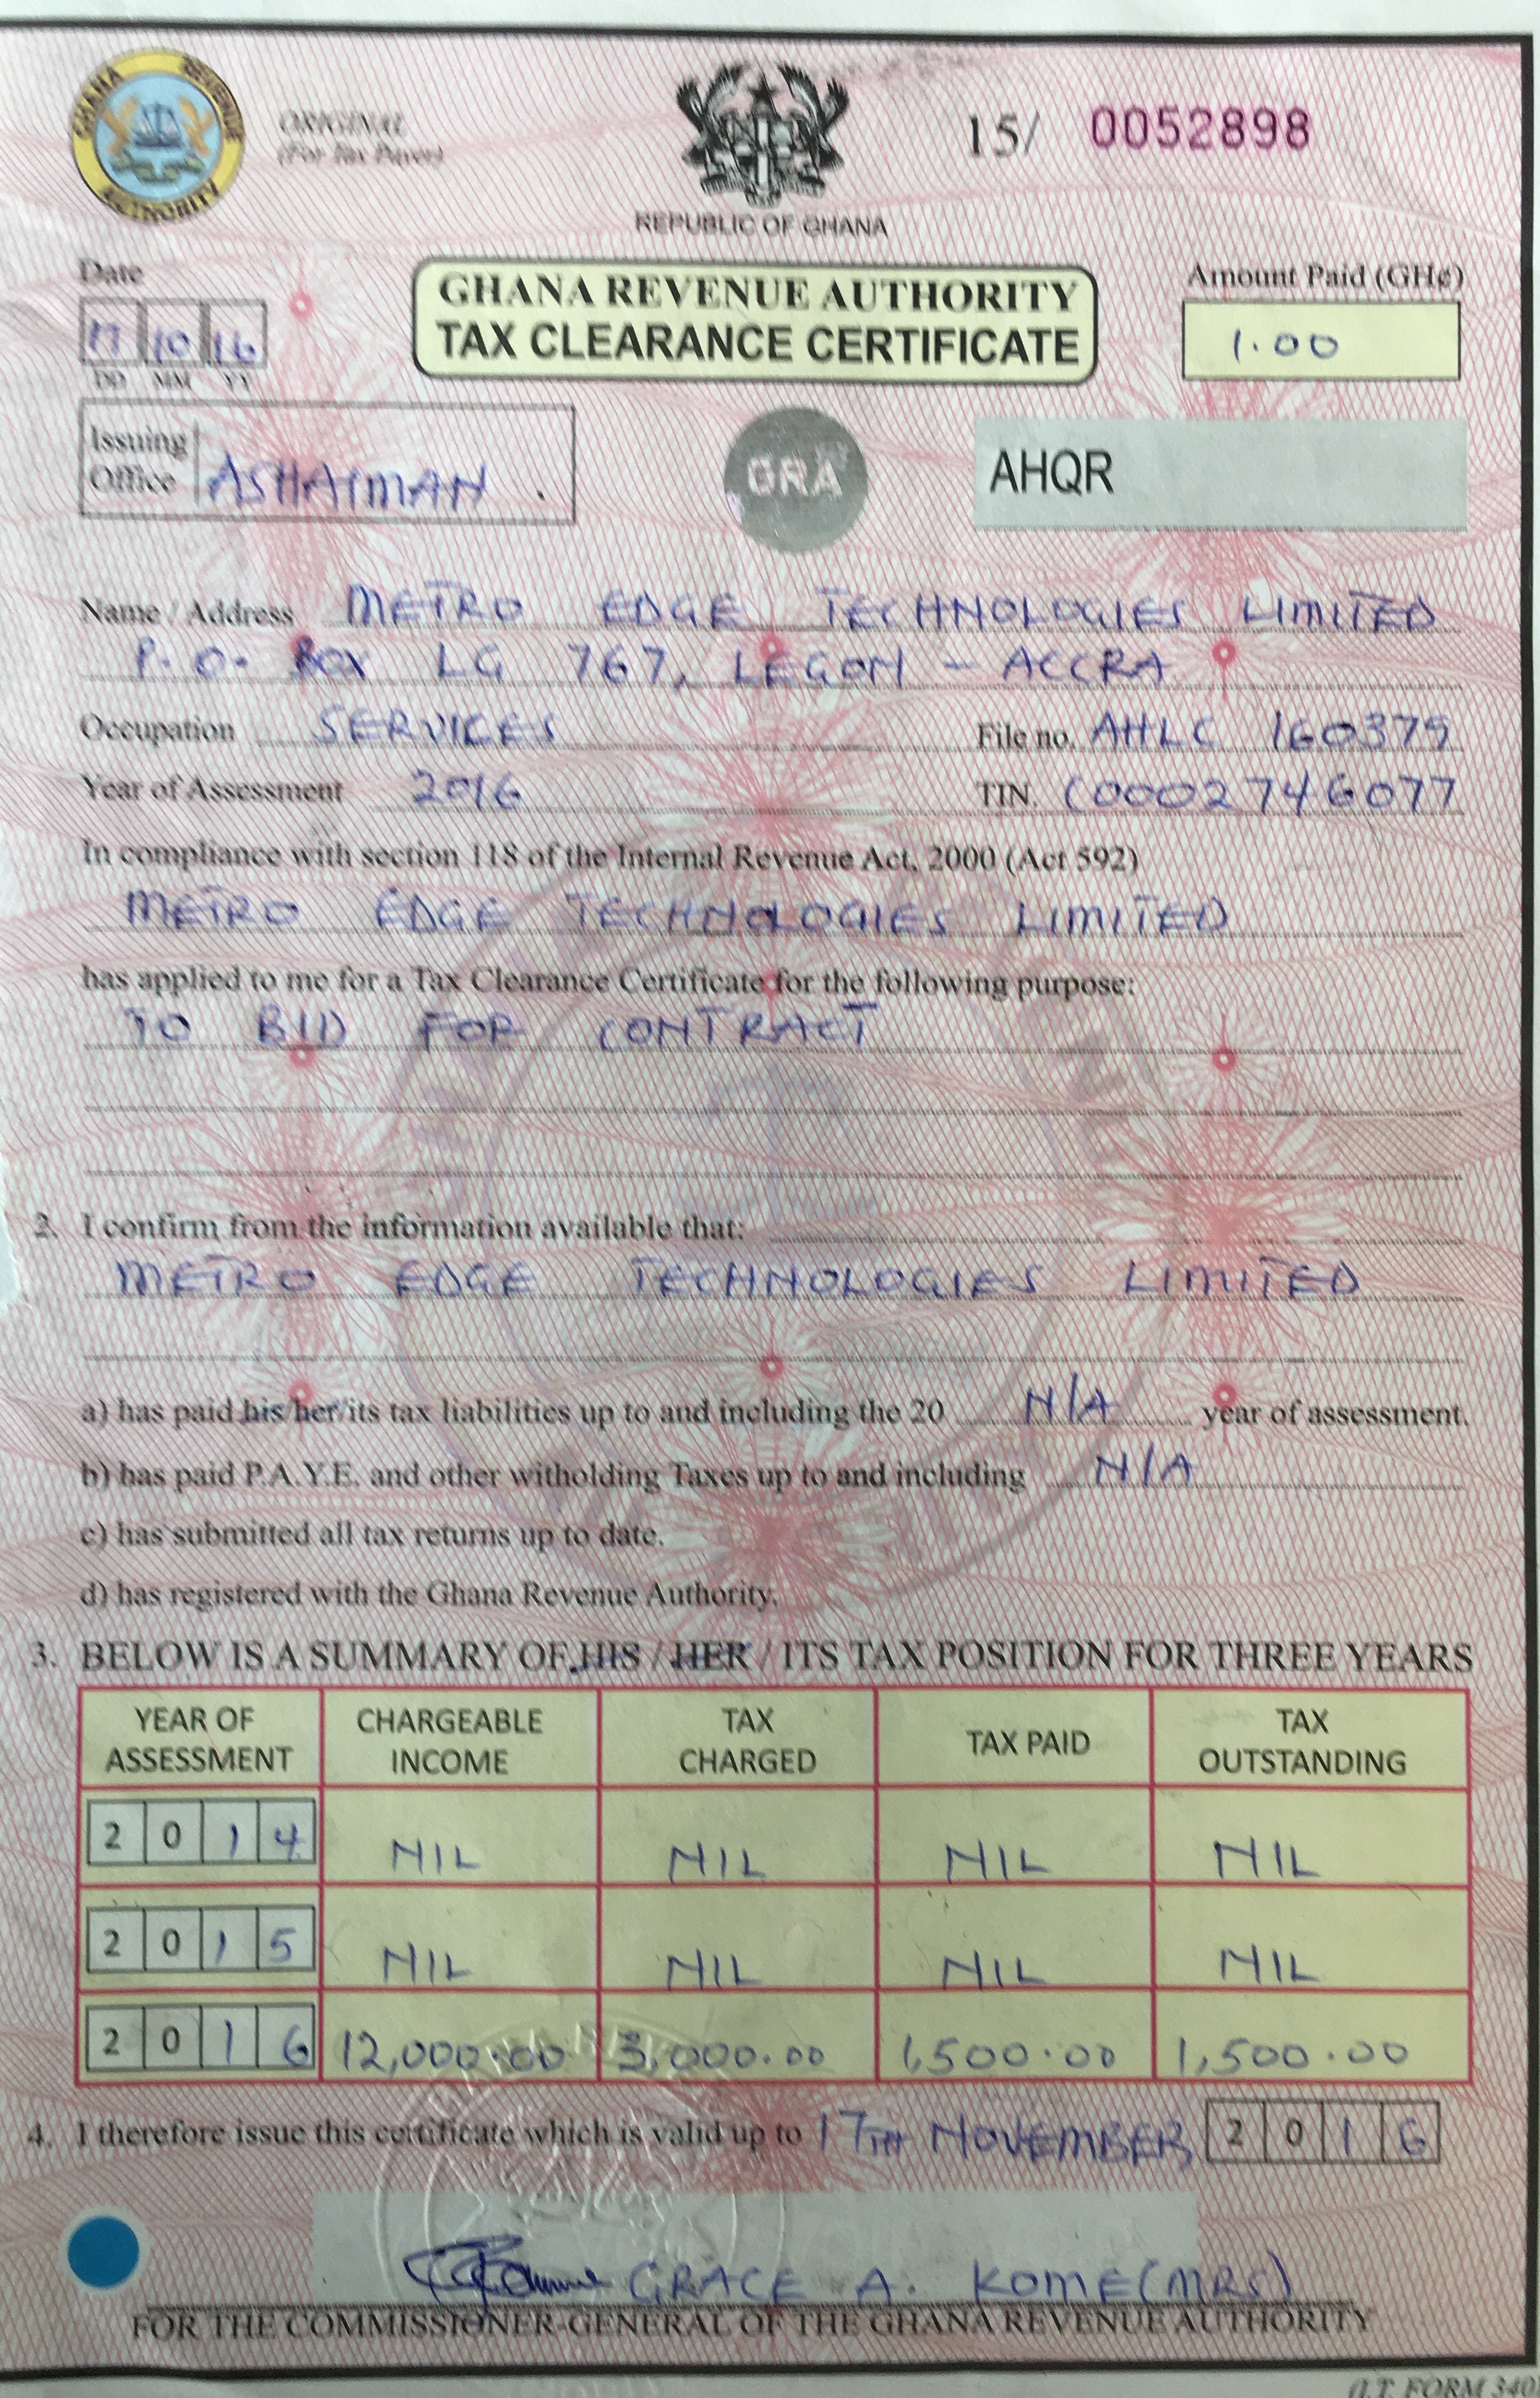 GHANA REVENUE AUTHORITY
ORIGINAL
(For Tax Payer)
REPUBLIC OF GHANA
15/ 0052898
Date
17 10 16
DD MM YY
GHANA REVENUE AUTHORITY
TAX CLEARANCE CERTIFICATE
Amount Paid (GH¢)
1.00
Issuing
Office ASHAIMAN .
GRA
AHQR
Name / Address METRO EDGE TECHNOLOGIES LIMITED
P.O. BOX LG 767, LEGON - ACCRA
Occupation SERVICES File no. AHLC 160379
Year of Assessment 2016 TIN. C0002746077
In compliance with section 118 of the Internal Revenue Act, 2000 (Act 592)
METRO EDGE TECHNOLOGIES LIMITED
has applied to me for a Tax Clearance Certificate for the following purpose:
TO BID FOR CONTRACT
2. I confirm from the information available that:
METRO EDGE TECHNOLOGIES LIMITED
a) has paid his/her/its tax liabilities up to and including the 20 N/A year of assessment.
b) has paid P.A.Y.E. and other witholding Taxes up to and including N/A
c) has submitted all tax returns up to date.
d) has registered with the Ghana Revenue Authority.
3. BELOW IS A SUMMARY OF HIS / HER / ITS TAX POSITION FOR THREE YEARS
YEAR OF ASSESSMENT CHARGEABLE INCOME TAX CHARGED TAX PAID TAX OUTSTANDING
2014 NIL NIL NIL NIL
2015 NIL NIL NIL NIL
2016 12,000.00 3,000.00 1,500.00 1,500.00
4. I therefore issue this certificate which is valid up to 17TH NOVEMBER 2016
GRACE A. KOME (MRS)
FOR THE COMMISSIONER-GENERAL OF THE GHANA REVENUE AUTHORITY
(I.T. FORM 340